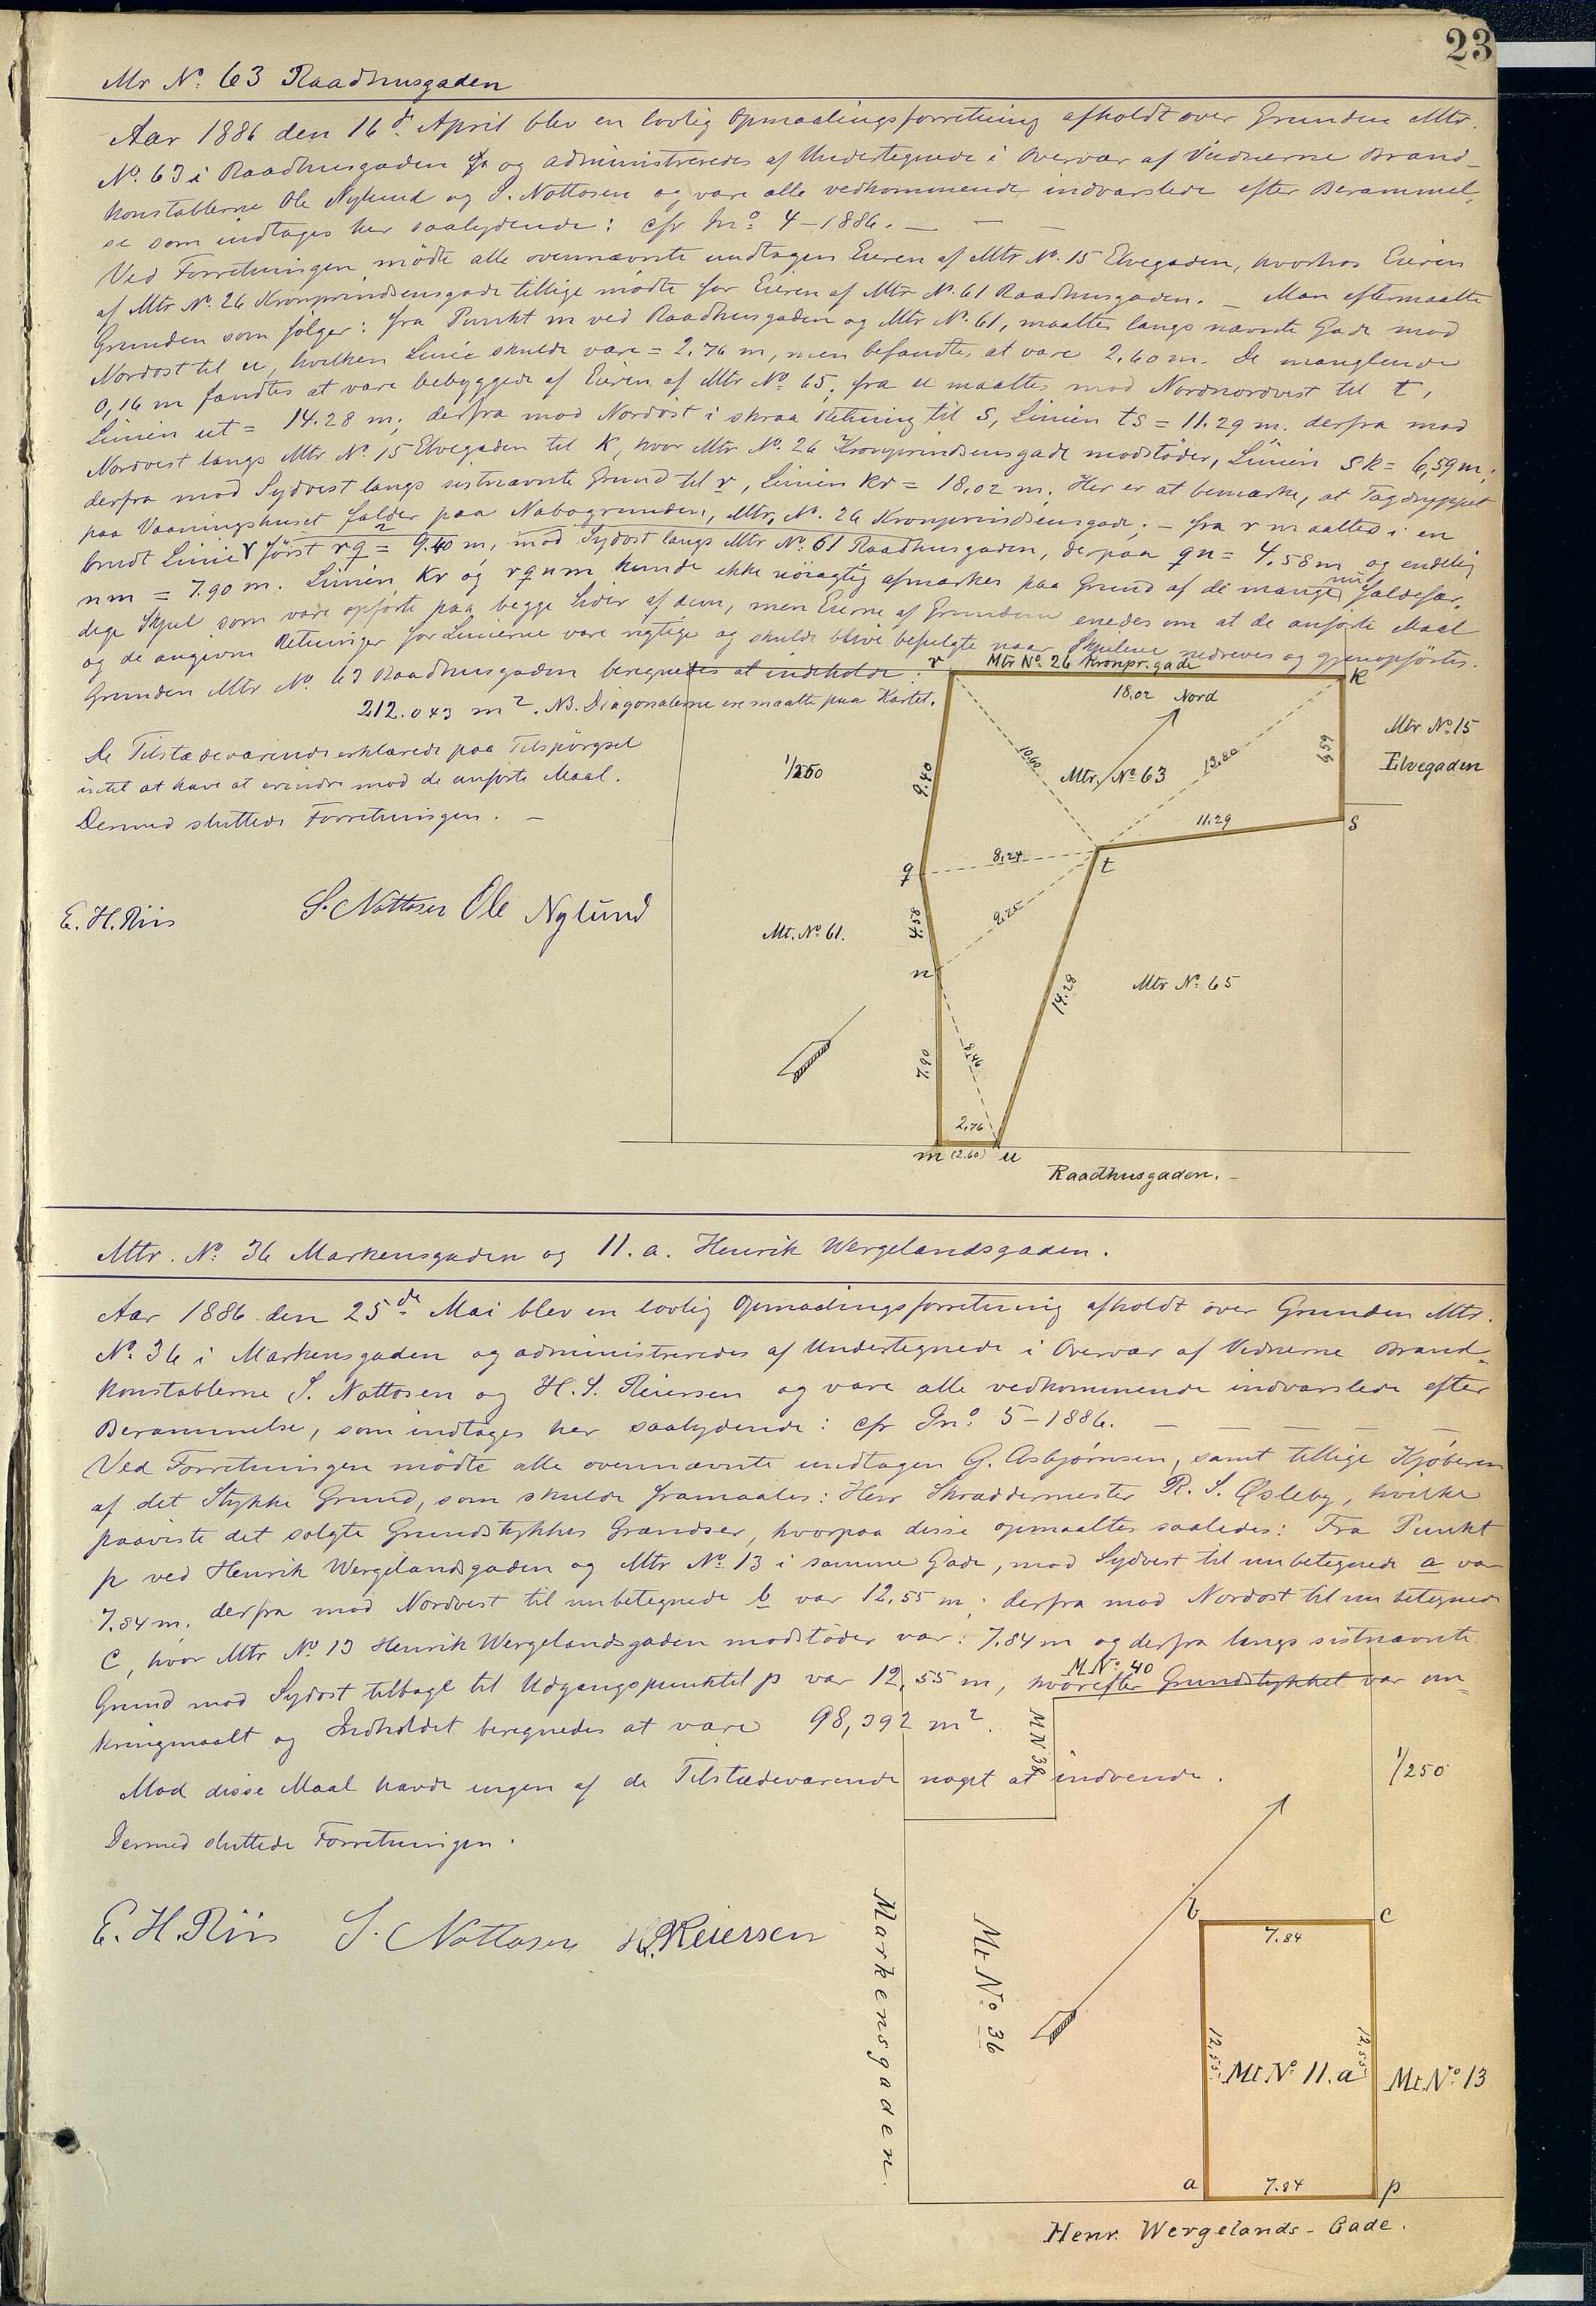 23
Mr No. 63 Raadhusgaden
Aar 1886 den 16d. April blev en lovlig Opmaalingsforretning afholdt over Grunden Mtr.
No. 63 i Raadhusgaden og administreredes af Undertegnede i Overvær af Vidnerne Brand-
konstablerne Ole Nylund og S. Nottosen og vare alle vedkommende indvarslede efter Berammel-
se som indtages her saalydende: cfr Jno. 4-1886. —
Ved Forretningen mødte alle ovennævnte undtagen Eieren af Mtr No. 15 Elvegaden, hvorhos Eieren
af Mtr No. 26 Kronprindsensgade tillige mødte for Eieren af Mtr No. 61 Raadhusgaden. — Man eftermaalte
Grunden som følger: fra Punkt m ved Raadhusgaden og Mtr No. 61, maaltes langs nævnte Gade mod
Nordost til u, hvilken Linie skulde være = 2,76 m, men befandtes at være 2,60 m. De manglende
0,16 m fandtes at være bebyggede af Eieren af Mtr No. 65; fra u maaltes mod Nordnordvest til t,
Linien ut = 14.28 m; derfra mod Nordost i skraa Retning til S, Linien ts = 11.29 m. derfra mod
Nordvest langs Mtr No. 15 Elvegaden til K, hvor Mtr No. 26 Kronprindsensgade modstøder, Linien SK = 6,59 m;
derfra mod Sydvest langs sistnævnte Grund til r, Linien Kr = 18,02 m. Her er at bemærke, at Tagdryppet
paa Vaaningshuset falder paa Nabogrunden, Mtr. No. 26 Kronprindsensgade; — fra r maaltes i en
brudt Linie først rq = 9.40 m, mod Sydost langs Mtr No. 61 Raadhusgaden, derpaa qn = 4.58 m og endelig
nm = 7.90 m. Linien Kr og rqnm kunde ikke nöiagtig afmærkes paa Grund af de mange nu faldefær-
dige Skjul som vare opførte paa begge Sider af dem, men Eierne af Grundene enedes om at de anførte Maal
og de angivne Retninger for Linierne vare rigtige og skulde blive befulgte naar Skjulene nedreves og gjenopførtes.
Grunden Mtr No. 63 Raadhusgaden beregnedes at indeholde:
212.043 m2. NB. Diagonalerne ere maalte paa Kartet.
De Tilstædeværende erklærede paa Tilspørgsel
intet at have at erindre mod de anførte Maal.
Dermed sluttede Forretningen. —
E. H. Riis
S. Nottosen Ole Nylund
1/250
r
Mtr No. 26 Kronpr. gade
K
18.02
Nord
Mtr No. 15
Elvegaden
6,59
9.40
10.60
Mtr. No. 63
13.80
11.29
S
8,24
q
t
4.58
9,25
Mt. No. 61.
n
14.28
Mtr No. 65
7.90
8,46
2,76
m
(2.60)
u
Raadhusgaden. —
Mtr. No. 36 Markensgaden og 11. a. Henrik Wergelandsgaden.
Aar 1886 den 25de Mai blev en lovlig Opmaalingsforretning afholdt over Grunden Mtr.
No. 36 i Markensgaden og administreredes af Undertegnede i Overvær af Vidnerne Brand-
konstablerne S. Nottosen og H. S. Reiersen og vare alle vedkommende indvarslede efter
Berammelse, som indtages her saalydende: cfr Jno. 5-1886. — — — — —
Ved Forretningen mødte alle ovennævnte undtagen G. Asbjørnsen, samt tillige Kjøberen
af det Stykke Grund, som skulde framaales: Herr Skræddermester R. S. Øsleby, hvilke
paaviste det solgte Grundstykkes Grændser, hvorpaa disse opmaaltes saaledes: Fra Punkt
p ved Henrik Wergelandsgaden og Mtr No. 13 i samme Gade, mod Sydvest til nu betegnede a var
7.84 m. derfra mod Nordvest til nu betegnede b var 12,55 m; derfra mod Nordost til nu betegnede
C, hvor Mtr No. 13 Henrik Wergelandsgaden modstøder var: 7.84 m og derfra langs sistnævnte
Grund mod Sydost tilbage til Udgangspunktet p var 12,55 m, hvorefter Grundstykket var om-
kringmaalt og Indholdet beregnedes at være 98,392 m2.
Mod disse Maal havde ingen af de Tilstædeværende noget at indvende.
Dermed sluttede Forretningen.
E. H. Riis S. Nottosen H. S. Reiersen
M No. 40
M N 38
1/250
Markensgaden.
Mt No. 36
b
c
7.84
12,55
12,55
Mt No. 11.a
Mt. No. 13
a
7.84
p
Henr. Wergelands-Gade.